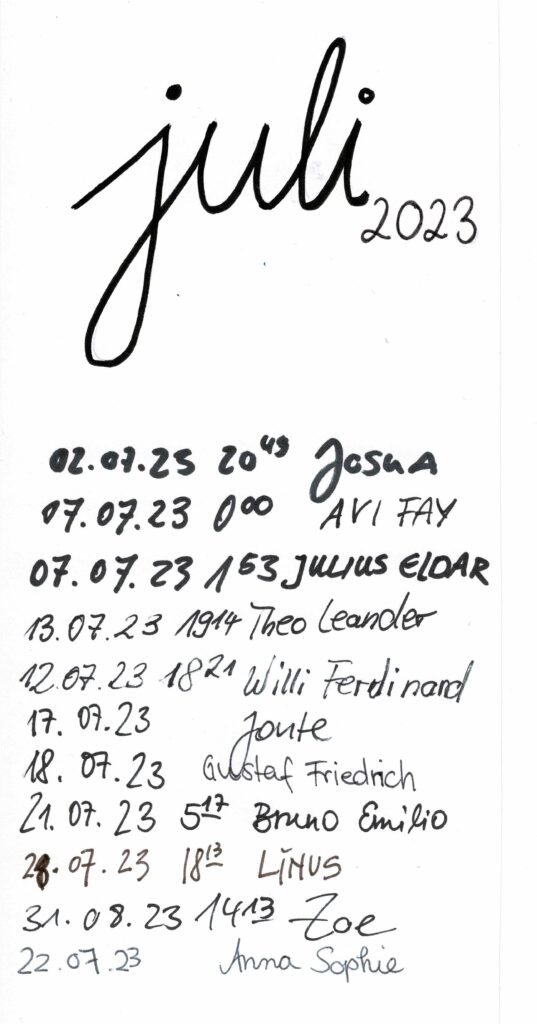 juli
2023
02.07.23 20⁴⁹ Josua
07.07.23 0⁰⁰ AVI FAY
07.07.23 1⁵³ JULIUS ELDAR
13.07.23 1914 Theo Leander
12.07.23 18²¹ Willi Ferdinand
17.07.23 Jonte
18.07.23 Gustaf Friedrich
21.07.23 5¹⁷ Bruno Emilio
28.07.23 18¹³ LINUS
31.08.23 14¹³ Zoe
22.07.23 Anna Sophie